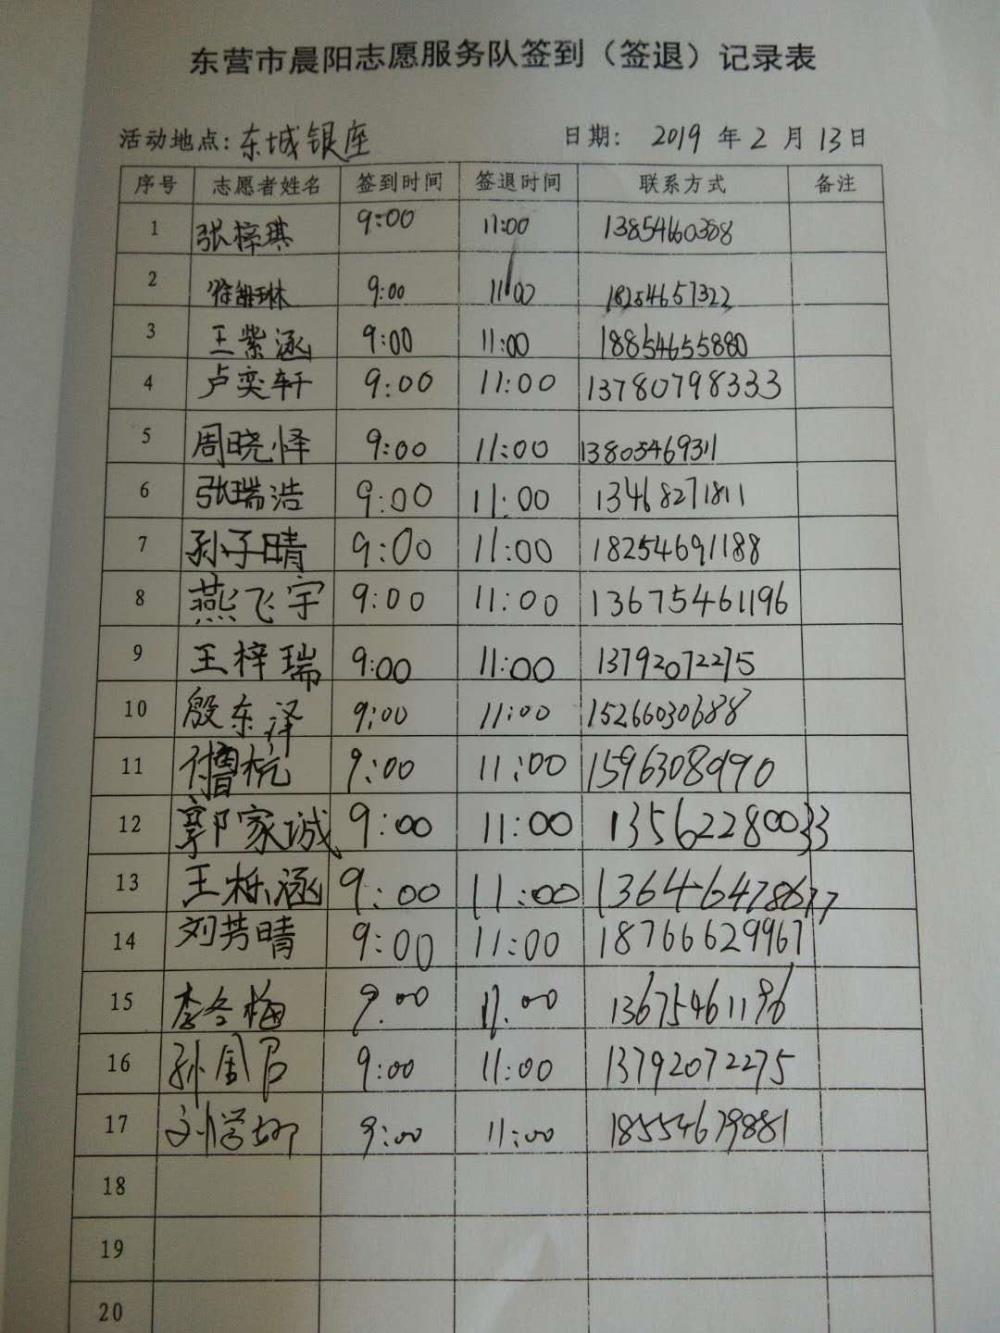 东营市晨阳志愿服务队签到（签退）记录表
活动地点: 东城银座 日期: 2019 年 2 月 13 日
序号 志愿者姓名 签到时间 签退时间 联系方式 备注
1 张梓琪 9:00 11:00 13854660388
2 9:00 11:00 18254657322
3 王紫涵 9:00 11:00 18854655880
4 卢奕轩 9:00 11:00 13780798333
5 周晓怿 9:00 11:00 13805469311
6 张瑞浩 9:00 11:00 13468271811
7 孙子晴 9:00 11:00 18254691188
8 燕飞宇 9:00 11:00 13675461196
9 王梓瑞 9:00 11:00 13792072275
10 殷东泽 9:00 11:00 15266030688
11 9:00 11:00 15963089990
12 郭家诚 9:00 11:00 13562280033
13 王栎涵 9:00 11:00 13646478677
14 刘芳晴 9:00 11:00 18766629967
15 李冬梅 9:00 11:00 13675461196
16 9:00 11:00 13792072275
17 9:00 11:00 18554679881
18
19
20